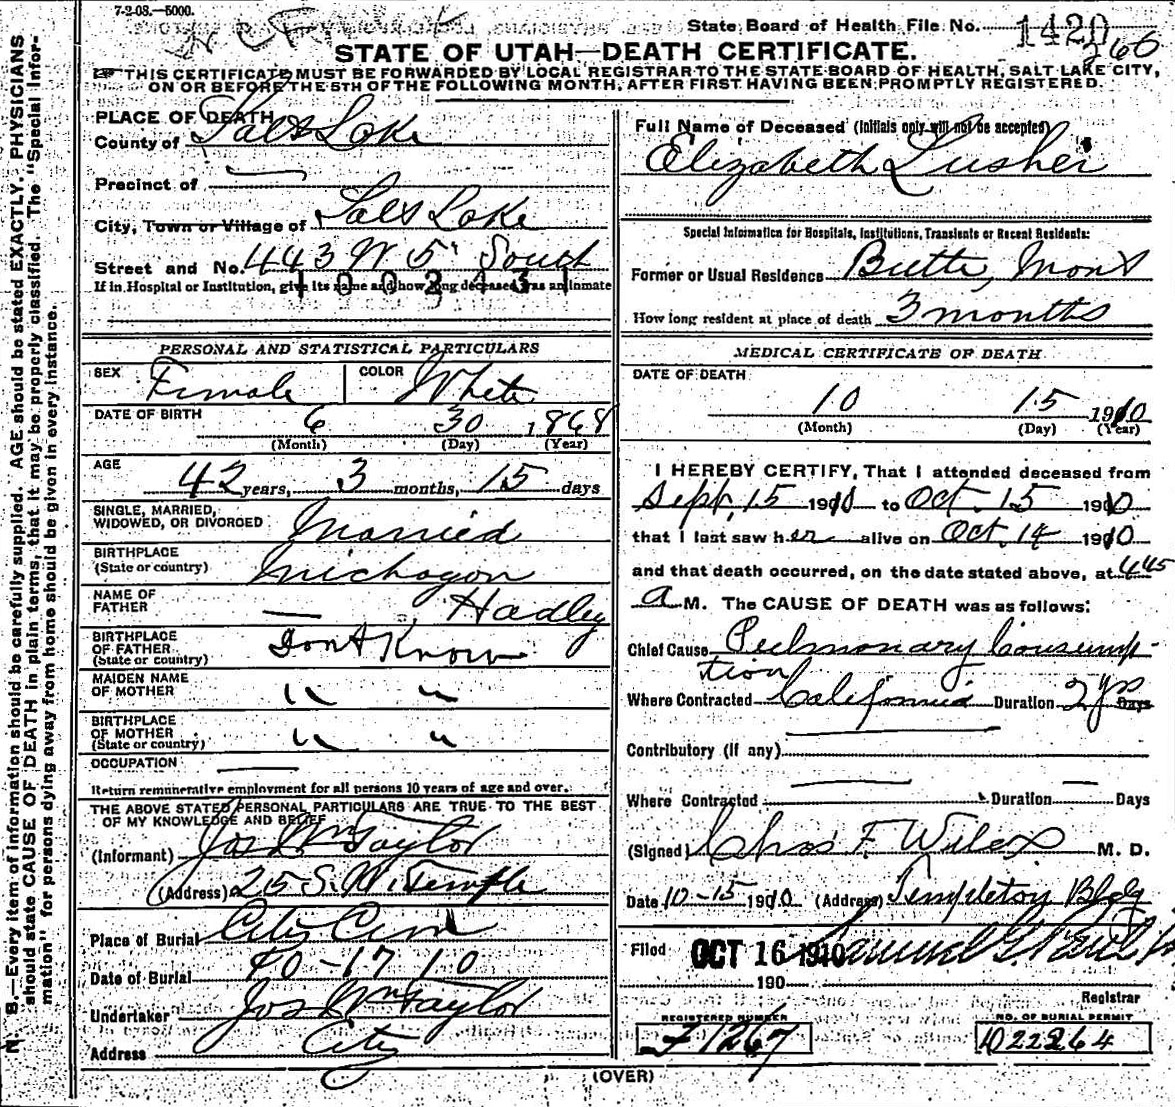 7-2-08.—5000.
State Board of Health File No. 1420
266
STATE OF UTAH—DEATH CERTIFICATE.
THIS CERTIFICATE MUST BE FORWARDED BY LOCAL REGISTRAR TO THE STATE BOARD OF HEALTH, SALT LAKE CITY,
ON OR BEFORE THE 5TH OF THE FOLLOWING MONTH, AFTER FIRST HAVING BEEN PROMPTLY REGISTERED.
N. B.—Every item of information should be carefully supplied. AGE should be stated EXACTLY. PHYSICIANS
should state CAUSE OF DEATH in plain terms, that it may be properly classified. The "Special Infor-
mation" for persons dying away from home should be given in every instance.
PLACE OF DEATH
County of Salt Lake
Precinct of —
City, Town or Village of Salt Lake
Street and No. 443 W 5' South
If in Hospital or Institution, give its name and how long deceased was an inmate
1002431
PERSONAL AND STATISTICAL PARTICULARS
SEX Female COLOR White
DATE OF BIRTH 6 30 1868
(Month) (Day) (Year)
AGE 42 years, 3 months, 15 days
SINGLE, MARRIED,
WIDOWED, OR DIVORCED Married
BIRTHPLACE
(State or country) Michagon
NAME OF
FATHER — Hadley
BIRTHPLACE
OF FATHER
(State or country) Dont Know
MAIDEN NAME
OF MOTHER " "
BIRTHPLACE
OF MOTHER
(State or country) " "
OCCUPATION —
Return remunerative employment for all persons 10 years of age and over.
THE ABOVE STATED PERSONAL PARTICULARS ARE TRUE TO THE BEST
OF MY KNOWLEDGE AND BELIEF
(Informant) Jos Wm Taylor
(Address) 25 S. W. Temple
Place of Burial City Cem
Date of Burial 10-17 10
Undertaker Jos Wm Taylor
Address City
Full Name of Deceased (Initials only will not be accepted)
Elizabeth Lusher
Special Information for Hospitals, Institutions, Transients or Recent Residents:
Former or Usual Residence Butte, Mont
How long resident at place of death 3 months
MEDICAL CERTIFICATE OF DEATH
DATE OF DEATH
10 15 1910
(Month) (Day) (Year)
I HEREBY CERTIFY, That I attended deceased from
Sept. 15 1910 to Oct. 15 1910
that I last saw her alive on Oct. 14 1910
and that death occurred, on the date stated above, at 4 45
a M. The CAUSE OF DEATH was as follows:
Chief Cause Pulmonary Consump-
tion
Where Contracted California Duration 2 yrs Days
Contributory (If any)
Where Contracted — Duration — Days
(Signed) Chas F. Wilcox M. D.
Date 10-15 1910 (Address) Templeton Bldg
Filed OCT 16 1910 Samuel G. Paul
190
Registrar
REGISTERED NUMBER NO. OF BURIAL PERMIT
F 1267 1022264
(OVER)